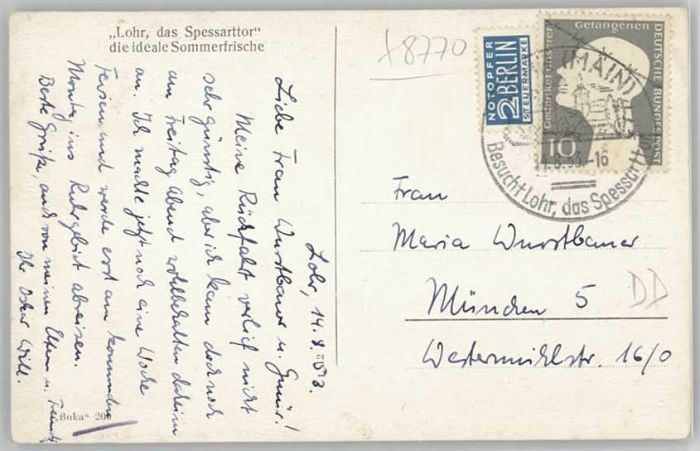 „Lohr, das Spessarttor"
die ideale Sommerfrische
x8770
NOTOPFER
2 BERLIN
STEUERMARKE
Gedenket unserer Gefangenen
DEUTSCHE BUNDESPOST
10
(MAIN)
-16
Besucht Lohr, das Spessarttor
Lohr, 14.8.53.
Liebe Frau Wurstbauer u.
Meine Rückfahrt verlief nicht
sehr günstig, aber ich kam doch noch
am Freitag abend wohlbehalten daheim
an. Ich mache jetzt noch eine Woche
Ferien und werde erst am kommenden
Montag ins Ruhrgebiet abreisen.
Beste Grüße, auch von meinen Eltern u.
Ihr Oskar Will.
Frau
Maria Wurstbauer
München 5
Westermühlstr. 16/0
DD
„Buka" 200